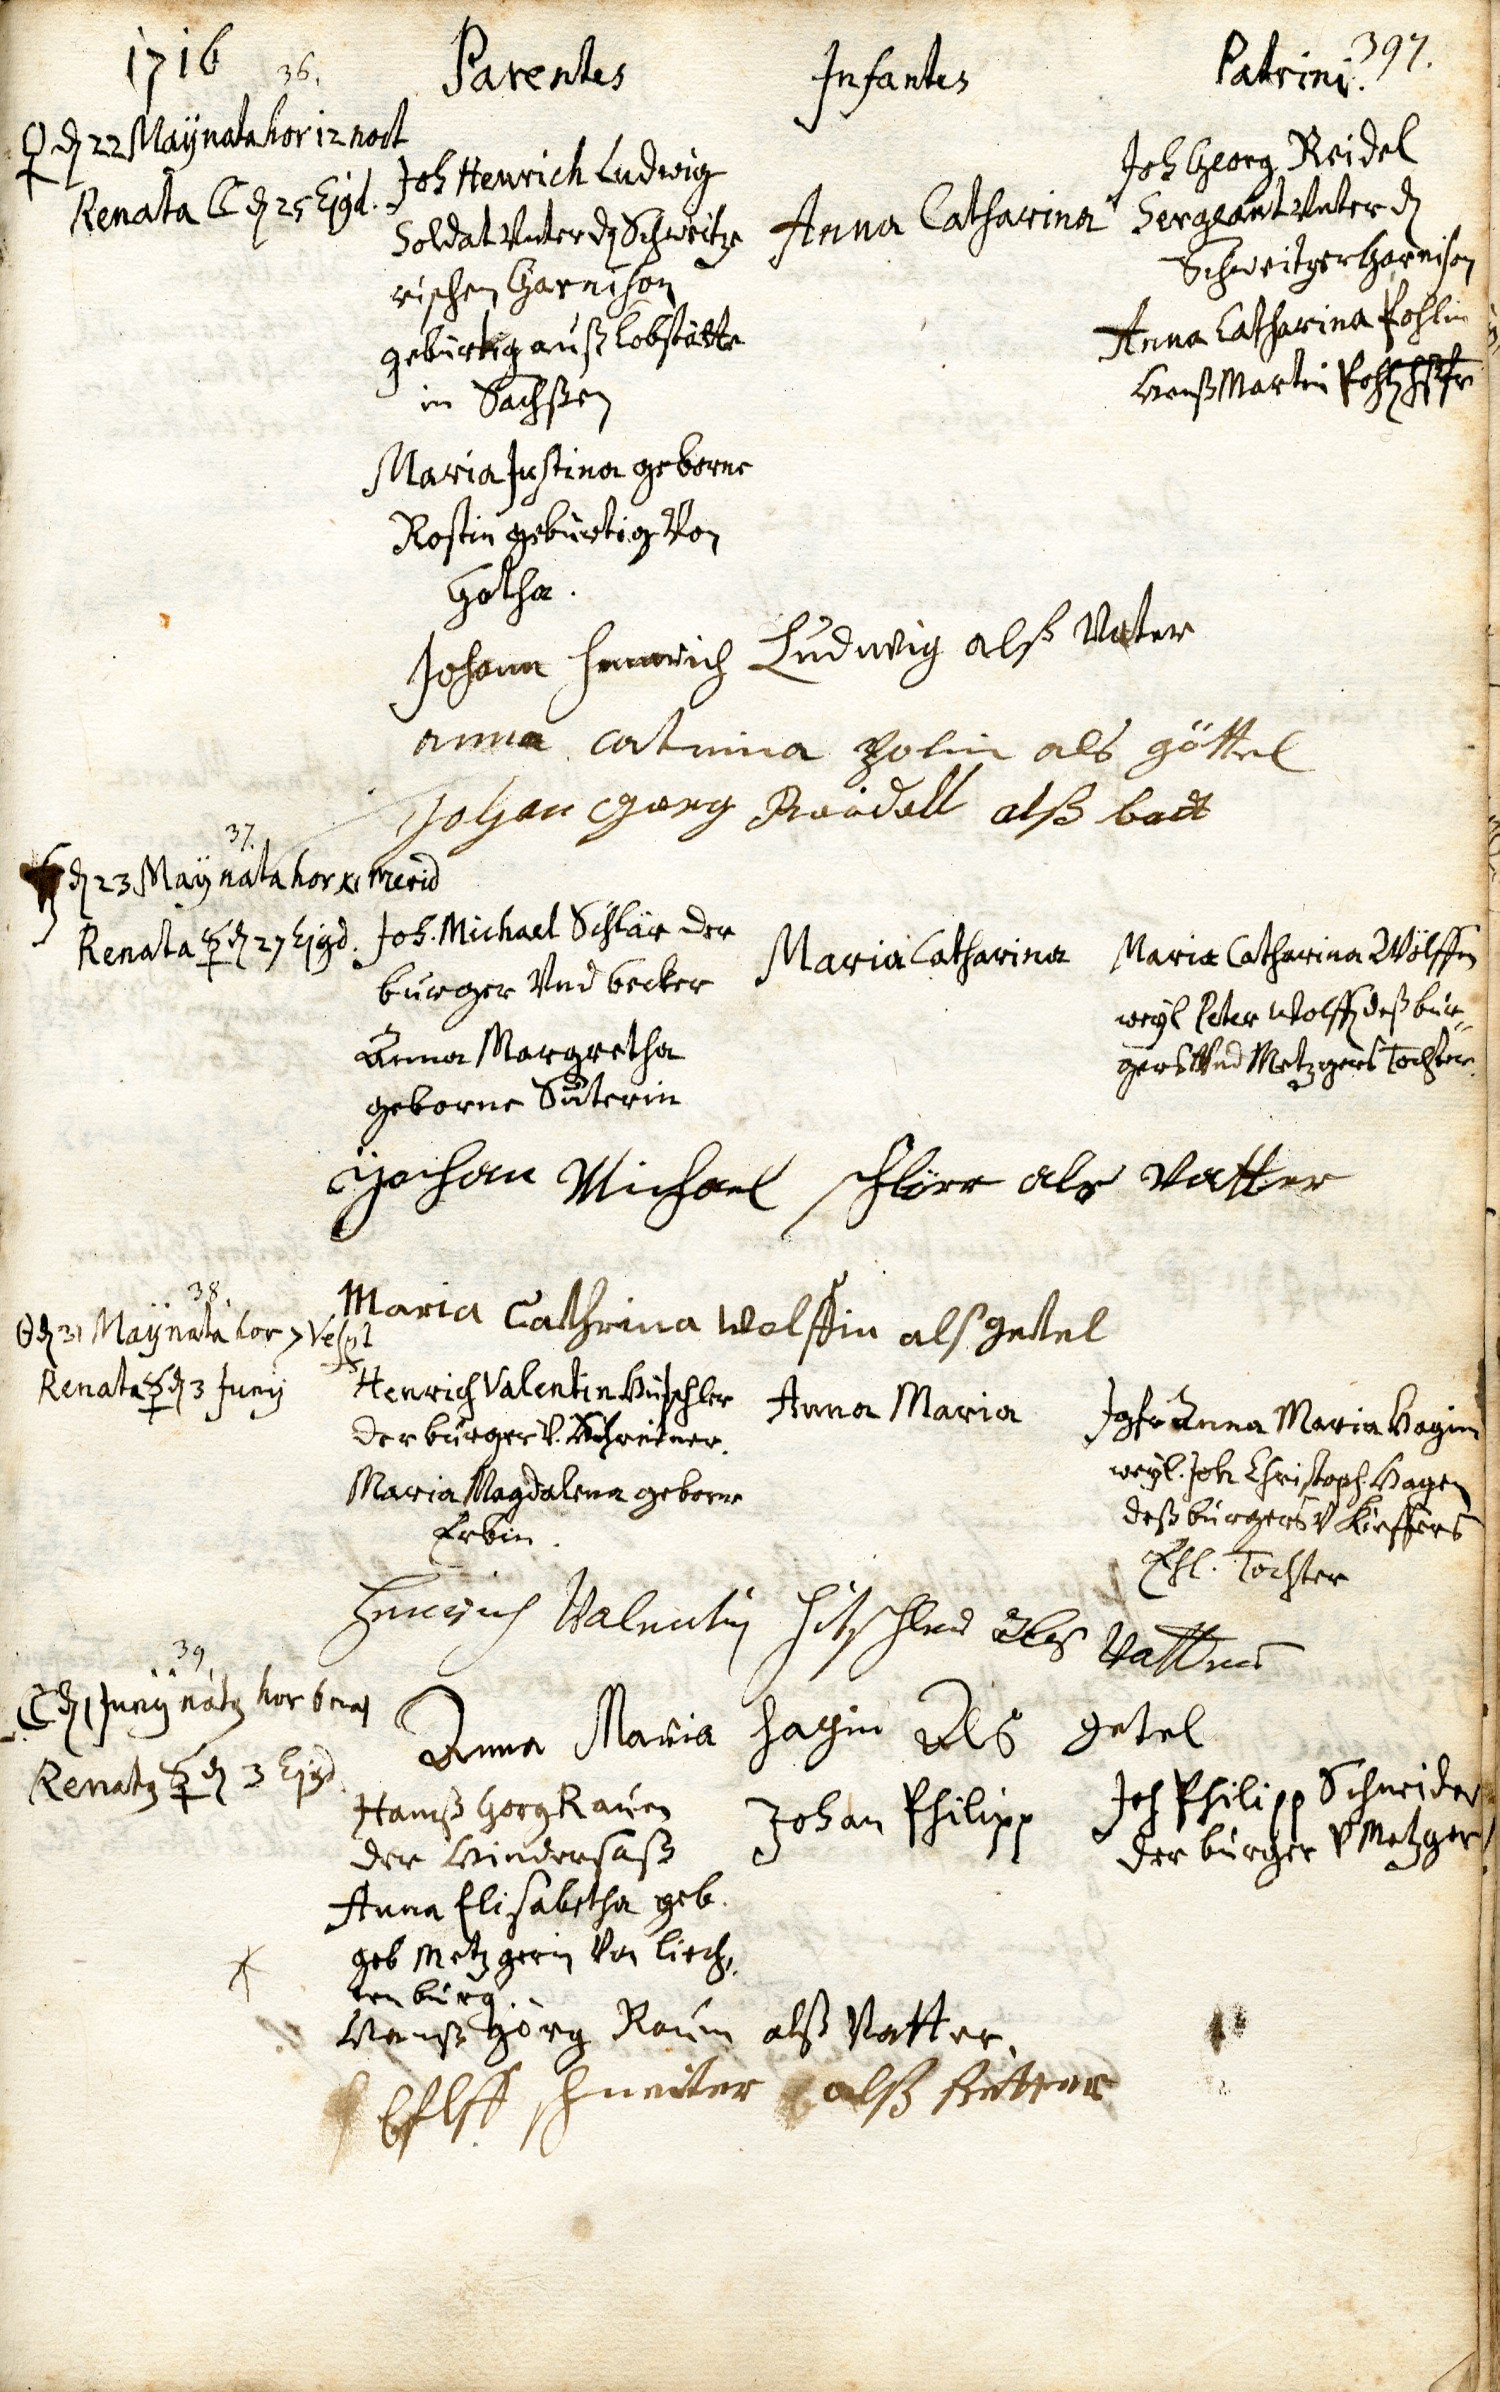 1716 Parentes Infantes Patrini. 397.
36.
♀ d 22 Maÿ nata hor 12 noct
Renata ☾ d 25 Ejgd.
Joh Henrich Ludwig
Soldat Vnter d Schweitze
rischen Garnison
gebürtig auß Lobstätte
in Sachßen
Maria Justina geborne
Rostin gebürtig Von
Gotha.
Anna Catharina
Joh Georg Reidel
Sergeant Vnter d
Schweitzer Garnison
Anna Catharina Pohlin
Hanß Martin Pohlß
Johann Henrich Ludwig alß Vater
anna catrina polin als göttel
Johan Georg Reidell alß
37.
d 23 Maÿ nata hor XI merid
Renata ☿ d 27 Ejgd.
Joh. Michael Schlär der
burger Vnd becker
Anna Margretha
geborne Suterin
Maria Catharina
Maria Catharina Wölffin
weÿl Peter Wolff deß bur-
gers Vnd Metzgers Tochter.
Johan Michael schlörr als Vatter
Maria Cathrina Wolffin als getel
38.
☉ d 31 Maÿ nata hor 7 Vespt
Renata ☿ d 3 Junÿ
Henrich Valentin Hitschler
der burger V. Schreiner.
Maria Magdalena geborne
Erbin.
Anna Maria
Jgfr Anna Maria Hagin
weÿl. Joh Christoph Hagen
deß burgers V Kieffers
Ehl. Tochter
Henrich Valentin Hitschler Als Vatter
Anna Maria hagin Als getel
39.
☾ d 1 Junÿ natꝰ hor 6 mat
Renatꝰ ☿ d 3 Ejgd.
Hanß Görg Rauen
der Hindersaß
Anna Elisabetha geb.
geb Metzgerin Von Liech-
tenburg.
Johan Philipp
Joh Philipp Schneider
der burger V Metzger
Hanß Görg Raum alß Vatter.
schneiter alß